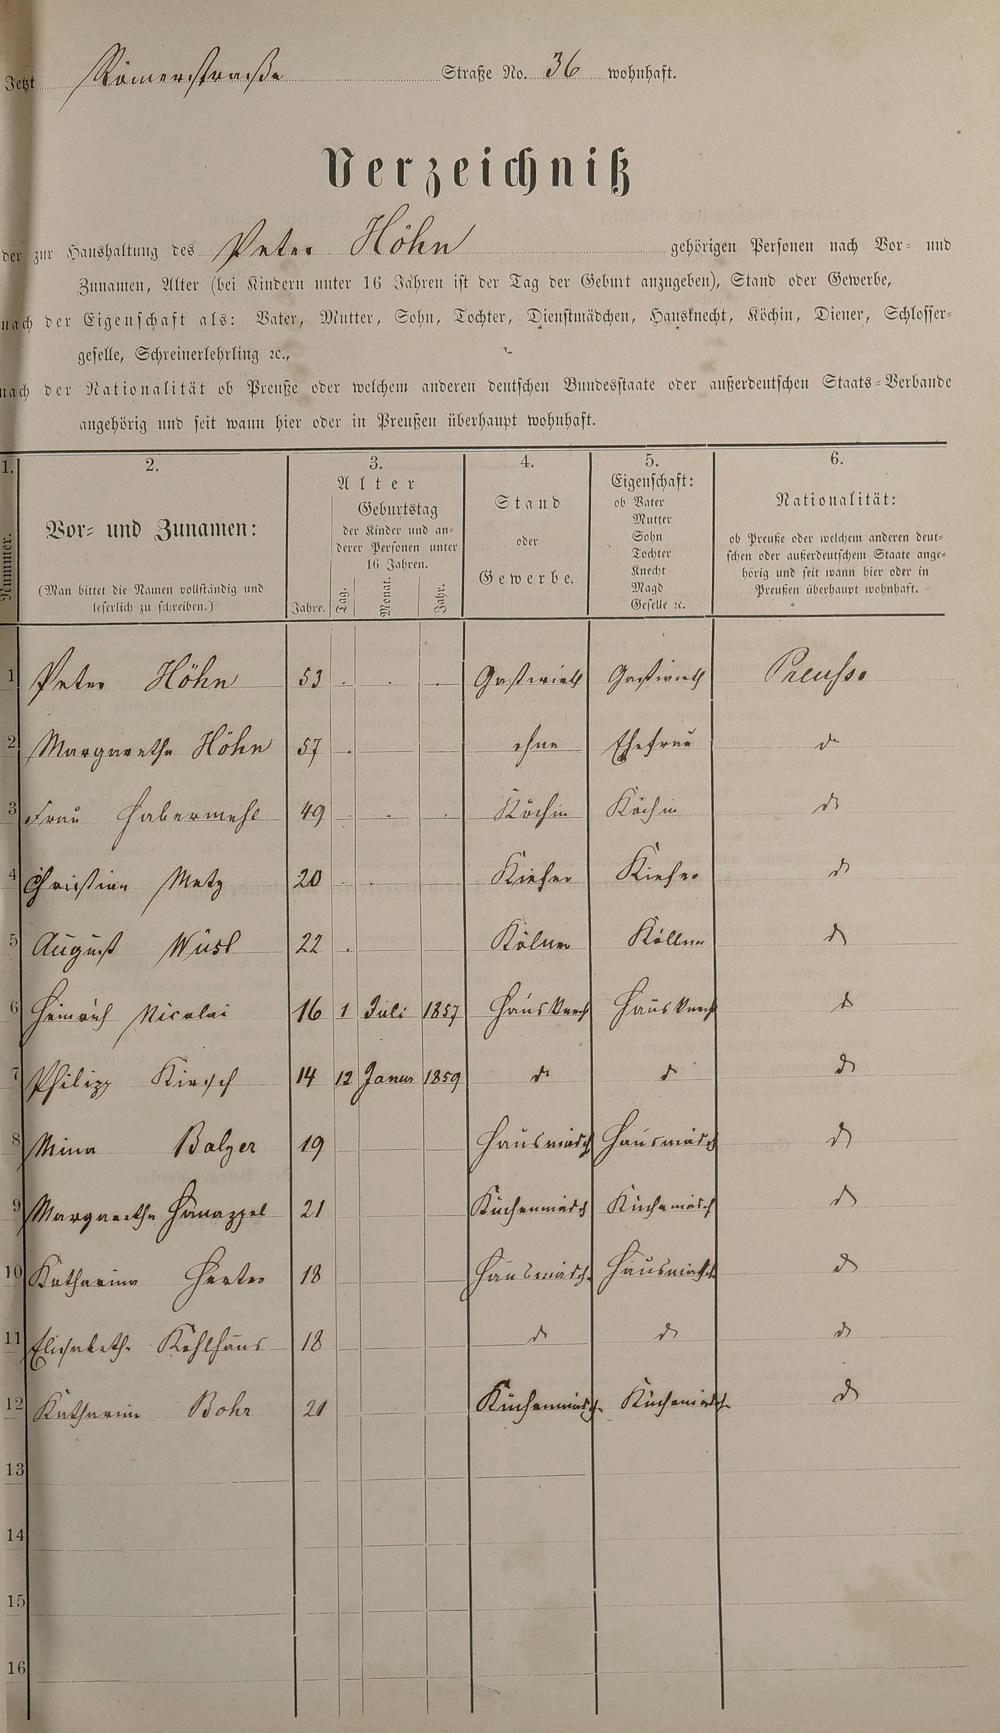 Jetzt Römerstraße Straße No. 36 wohnhaft.
Verzeichniß
der zur Haushaltung des Peter Höhn gehörigen Personen nach Vor- und
Zunamen, Alter (bei Kindern unter 16 Jahren ist der Tag der Geburt anzugeben), Stand oder Gewerbe,
nach der Eigenschaft als: Vater, Mutter, Sohn, Tochter, Dienstmädchen, Hausknecht, Köchin, Diener, Schlosser-
geselle, Schreinerlehrling ꝛc.,
nach der Nationalität ob Preuße oder welchem anderen deutschen Bundesstaate oder außerdeutschen Staats-Verbande
angehörig und seit wann hier oder in Preußen überhaupt wohnhaft.
1. 2. 3. 4. 5. 6.
Nummer.
Vor- und Zunamen:
(Man bittet die Namen vollständig und
leserlich zu schreiben.)
Alter
Jahre.
Geburtstag
der Kinder und an-
derer Personen unter
16 Jahren.
Tag. Monat. Jahr.
Stand
oder
Gewerbe.
Eigenschaft:
ob Vater
Mutter
Sohn
Tochter
Knecht
Magd
Geselle ꝛc.
Nationalität:
ob Preuße oder welchem anderen deut-
schen oder außerdeutschem Staate ange-
hörig und seit wann hier oder in
Preußen überhaupt wohnhaft.
1 Peter Höhn 53 Gastwirth Gastwirth Preusse
2 Margarethe Höhn 57 ohne Ehefrau do
3 Frau Habermehl 49 Köchin Köchin do
4 Christian Metz 20 Kiefer Kiefer do
5 August 22 Kölner Köllner do
6 Heinrich Nicolai 16 1 Juli 1857 Hausknecht Hausknecht do
7 Philipp Kirsch 14 12 Januar 1859 do do do
8 Mina Balzer 19 Hausmädch Hausmädch do
9 Margarethe Hanappel 21 Küchenmädch Küchemädch do
10 Katharina 18 Hausmädch Hausmädch do
11 Elisabethe Kohlhaus 18 do do do
12 Katharina Bohr 21 Küchenmädch Küchemädch do
13
14
15
16